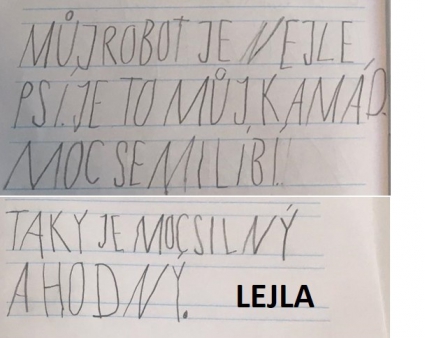 MŮJROBOT JE NEJLE
PSÍ.JE TO MŮJ KÁMÁD.
MOC SE MI LÍBÍ.
TAKY JE MOCSILNÝ
A HODNÝ.
LEJLA